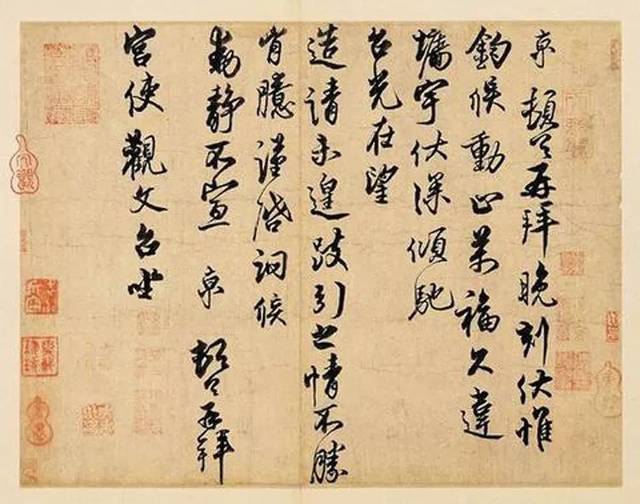 京頓首再拜晚刻伏惟
鈞候動止萬福久違
墻宇伏深傾馳
台光在望
造請未遑跂引之情不勝
胷臆謹啓詢候
動靜不宣京頓首再拜
宮使觀文台坐